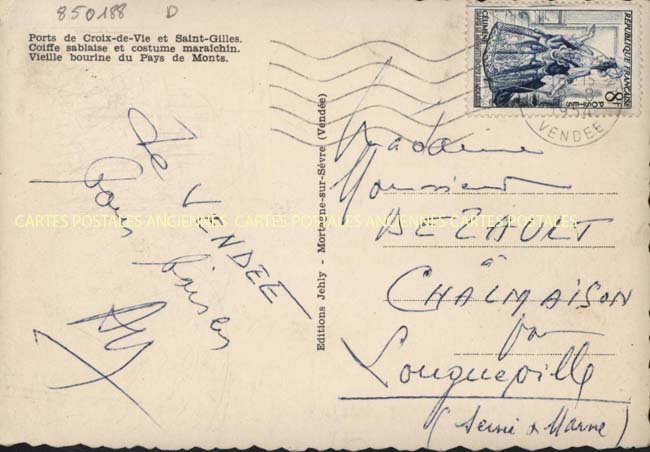 850188 D
Ports de Croix-de-Vie et Saint-Gilles.
Coiffe sablaise et costume maraichin.
Vieille bourine du Pays de Monts.
REPUBLIQUE FRANÇAISE
8F
POSTES
CELIMENE
VENDEE
De VENDEE
bons baisers
Editions Jehly - Mortagne-sur-Sèvre (Vendée)
Madame
Monsieur
à
CHALMAISON
par
Longueville
(Seine & Marne)
CARTES POSTALES ANCIENNES CARTES POSTALES ANCIENNES CARTES POSTALES ANCIENNES